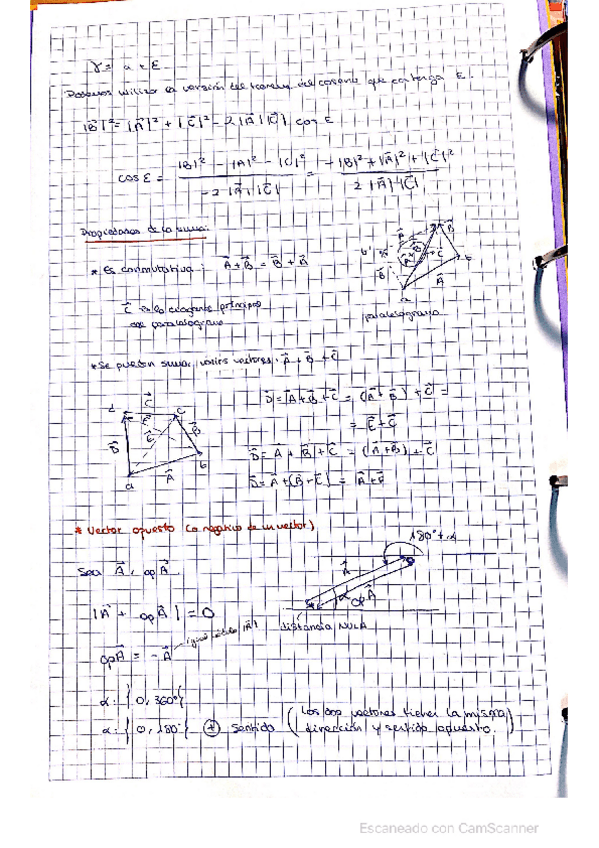 γ = α + ε
Podemos utilizar la versión del teorema del coseno que contenga ε.
|B⃗|² = |A⃗|² + |C⃗|² - 2|A⃗||C⃗| cos ε
cos ε = (|B|² - |A|² - |C|²) / (-2|A⃗||C⃗|) = (-|B|² + |A|² + |C|²) / (2|A⃗||C⃗|)
Propiedades de la suma:
* Es conmutativa: A⃗ + B⃗ = B⃗ + A⃗
C⃗ es la diagonal principal
del paralelogramo
paralelogramo
* Se pueden sumar varios vectores. A⃗ + B⃗ + C⃗
D⃗ = A⃗ + B⃗ + C⃗ = (A⃗ + B⃗) + C⃗ =
= E⃗ + C⃗
D⃗ = A⃗ + B⃗ + C⃗ = (A⃗ + B⃗) + C⃗
D⃗ = A⃗ + (B⃗ + C⃗) = A⃗ + F⃗
* Vector opuesto (o negativo de un vector)
180° + α
Sea A⃗, op A⃗
|A⃗ + op A⃗| = 0
distancia NULA
op A⃗ = - A⃗
α: {0, 360°}
α: {0, 180°} ⊕ sentido (Los dos vectores tienen la misma
dirección y sentido opuesto.)
Escaneado con CamScanner